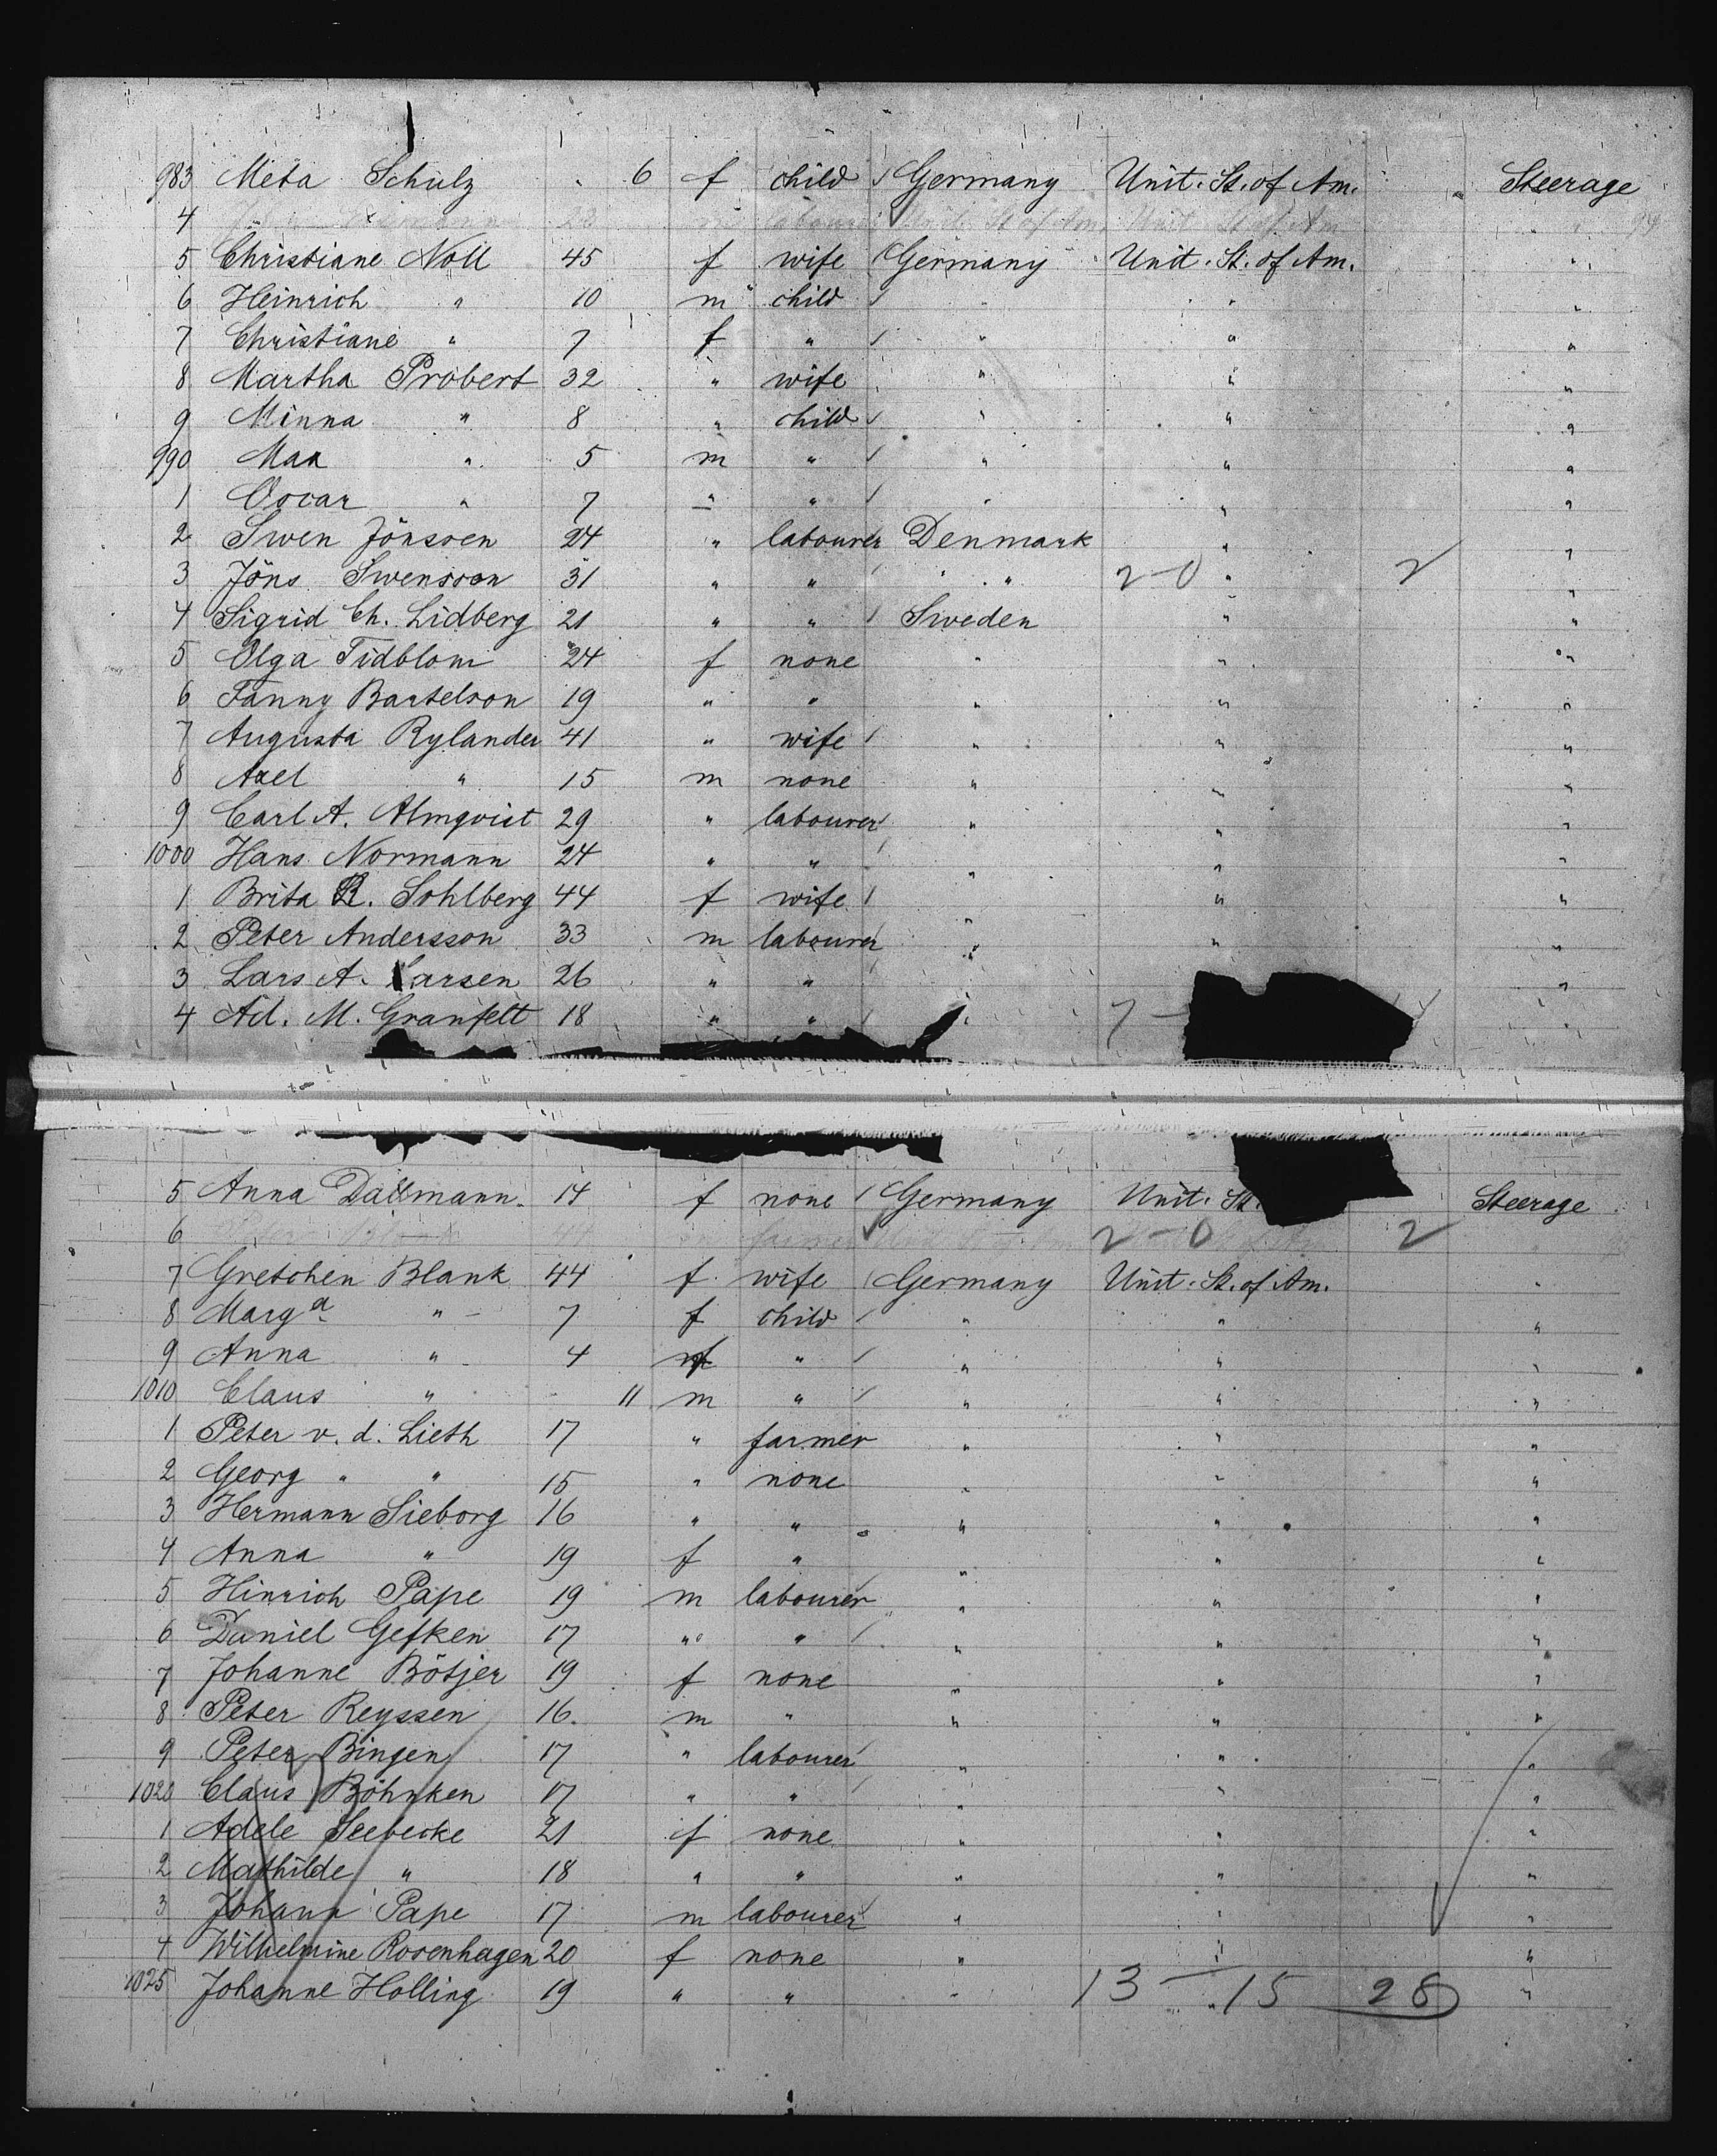 983 Meta Schulz 6 f child Germany Unit. St. of Am. " Steerage
4 22 labourer Unit. St. of Am. Unit. St. of Am. "
5 Christiane Noll 45 f wife Germany Unit. St. of Am. "
6 Heinrich " 10 m child " " "
7 Christiane " 7 f " " " "
8 Martha Probert 32 " wife " " "
9 Minna " 8 " child " " "
990 Max " 5 m " " " "
1 Oscar " 7 " " " " "
2 Swen Jönssen 24 " labourer Denmark " "
3 Jöns Swensson 31 " " " 2-0 " 2 "
4 Sigrid Ch. Lidberg 21 " " Sweden " "
5 Olga Tidblom 24 f none " " "
6 Fanny Bartelson 19 " " " " "
7 Augusta Rylander 41 " wife " " "
8 Axel " 15 m none " " "
9 Carl A. Almqvist 29 " labourer " " "
1000 Hans Normann 24 " " " " "
1 Brita R. Sohlberg 44 f wife " " "
2 Peter Andersson 33 m labourer " " "
3 Lars A. Larsen 26 " " " "
4 Ad. M. Granfelt 18 " " " 7 - "
5 Anna Dallmann 14 f none Germany Unit. St. Steerage
6 44 farmer 2-0 2
7 Gretchen Blank 44 f wife Germany Unit. St. of Am. "
8 Marga " 7 f child " " "
9 Anna " 4 f " " " "
1010 Claus " 11 m " " " "
1 Peter v. d. Lieth 17 " farmer " " "
2 Georg " " 15 " none " " "
3 Hermann Sieborg 16 " " " " "
4 Anna " 19 f " " " "
5 Hinrich Pape 19 m labourer " " "
6 Daniel Gefken 17 " " " " "
7 Johanne Bötjer 19 f none " " "
8 Peter Reyssen 16. m " " " "
9 Peter Bingen 17 " labourer " " "
1020 Claus Böhnken 17 " " " " "
1 Adele Seebecke 21 f none " " "
2 Mathilde " 18 " " " " "
3 Johann Pape 17 m labourer " " "
4 Wilhelmine Rosenhagen 20 f none " " "
1025 Johanne Holling 19 " " " 13 - 15 28 "